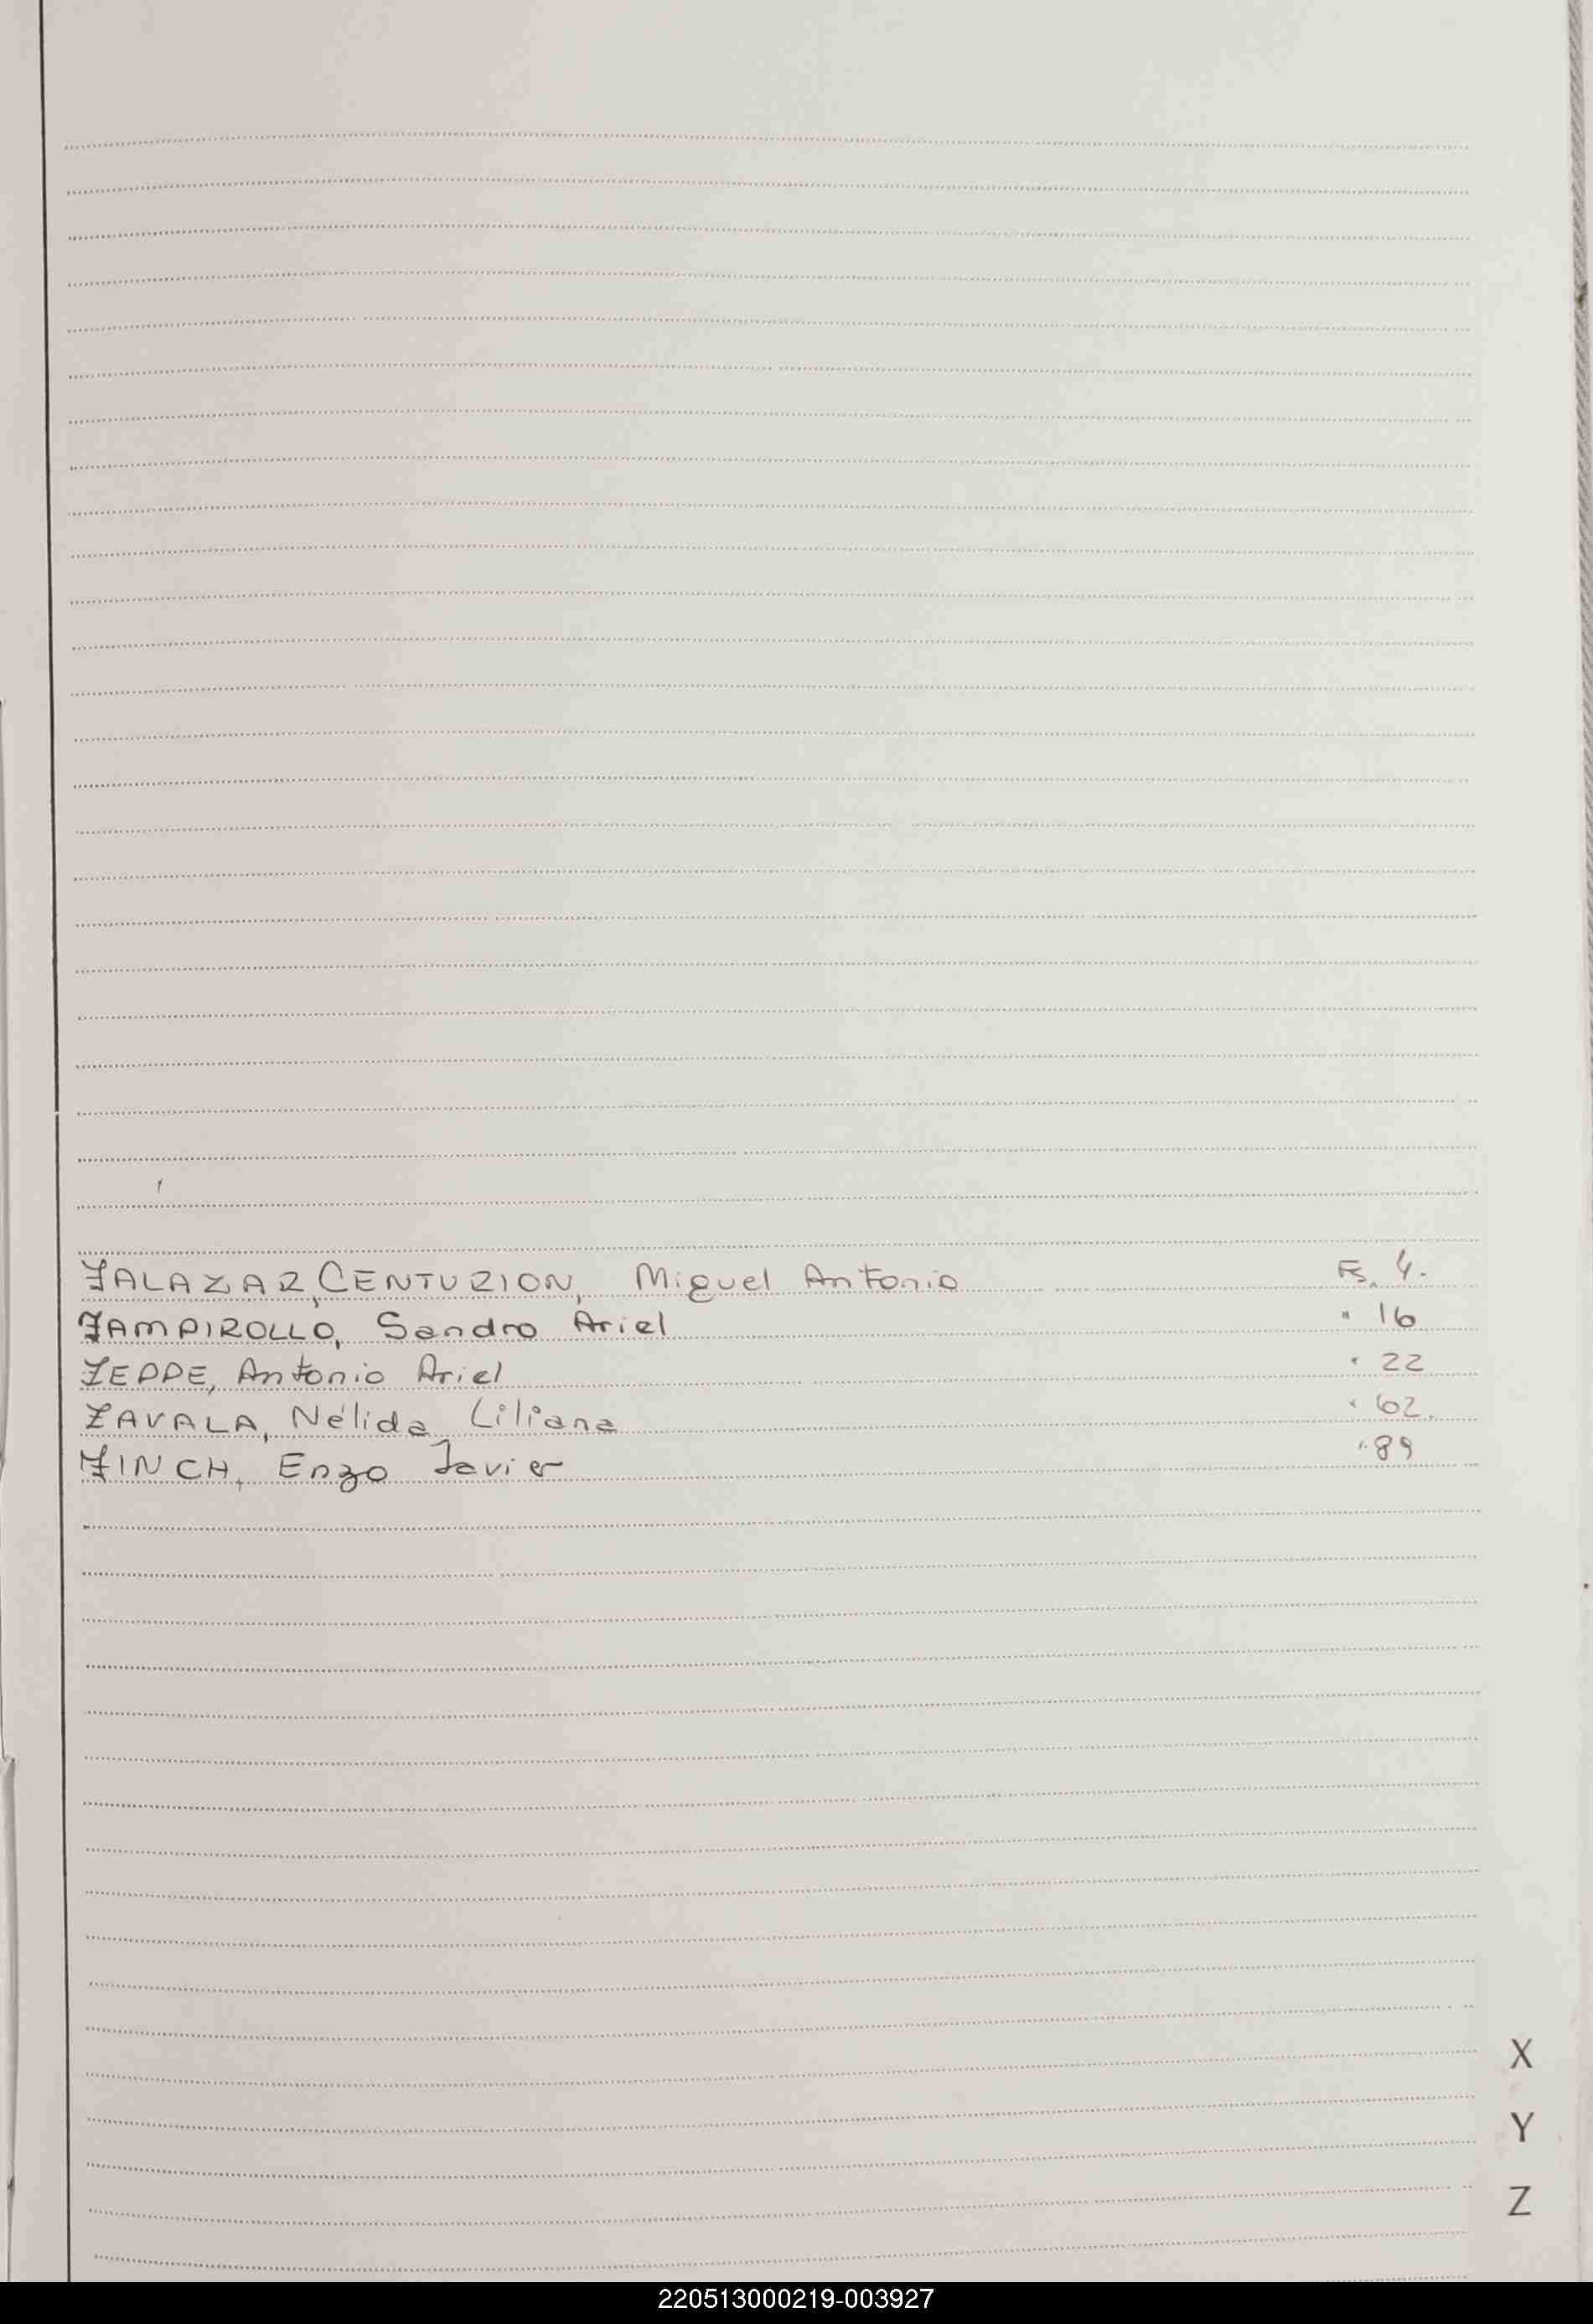 ZALAZAR, CENTURION, Miguel Antonio Fs. 4.
ZAMPIROLLO, Sandro Ariel " 16
ZEPPE, Antonio Ariel " 22
ZAVALA, Nélida Liliana " 62.
ZINCH, Enzo Javier " 89
X
Y
Z
220513000219-003927